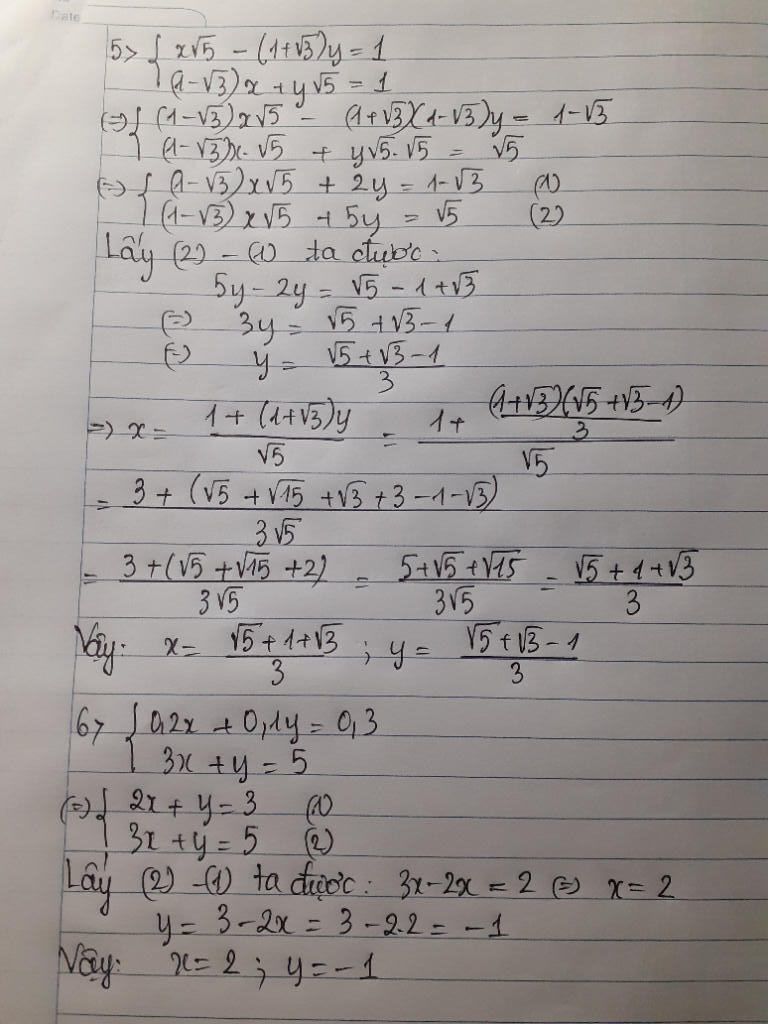 Date
5> { x√5 - (1+√3)y = 1
(1-√3)x + y√5 = 1
(=) { (1-√3)x√5 - (1+√3)(1-√3)y = 1-√3
(1-√3)x.√5 + y√5.√5 = √5
(=) { (1-√3)x√5 + 2y = 1-√3 (1)
(1-√3)x√5 + 5y = √5 (2)
Lấy (2) - (1) ta được:
5y - 2y = √5 - 1 + √3
(=) 3y = √5 + √3 - 1
(=) y = (√5 + √3 - 1)/3
=) x = (1 + (1+√3)y)/√5 = (1 + ((1+√3)(√5+√3-1))/3)/√5
= (3 + (√5 + √15 + √3 + 3 - 1 - √3))/(3√5)
= (3 + (√5 + √15 + 2))/(3√5) = (5 + √5 + √15)/(3√5) = (√5 + 1 + √3)/3
Vậy: x = (√5 + 1 + √3)/3 ; y = (√5 + √3 - 1)/3
6> { 0,2x + 0,1y = 0,3
3x + y = 5
(=) { 2x + y = 3 (1)
3x + y = 5 (2)
Lấy (2) - (1) ta được: 3x - 2x = 2 (=) x = 2
y = 3 - 2x = 3 - 2.2 = -1
Vậy: x = 2 ; y = -1